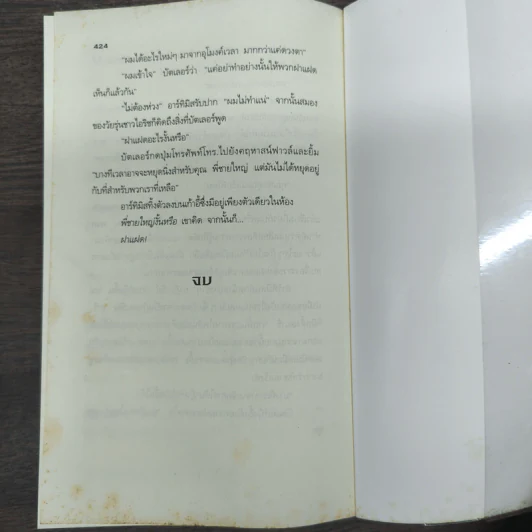 424
"ผมได้อะไรใหม่ๆ มาจากอุโมงค์เวลา มากกว่าแค่ดวงตา"
"ผมเข้าใจ" บัตเลอร์ว่า "แต่อย่าทำอย่างนั้นให้พวกฝาแฝด
เห็นก็แล้วกัน"
"ไม่ต้องห่วง" อาร์ทิมิสรับปาก "ผมไม่ทำแน่" จากนั้นสมอง
ของวัยรุ่นชาวไอริชก็คิดถึงสิ่งที่บัตเลอร์พูด
"ฝาแฝดอะไรงั้นหรือ"
บัตเลอร์กดปุ่มโทรศัพท์โทร.ไปยังคฤหาสน์ฟาวล์และยิ้ม
"บางทีเวลาอาจจะหยุดนิ่งสำหรับคุณ พี่ชายใหญ่ แต่มันไม่ได้หยุดอยู่
กับที่สำหรับพวกเราที่เหลือ"
อาร์ทิมิสทิ้งตัวลงบนเก้าอี้ซึ่งมีอยู่เพียงตัวเดียวในห้อง
พี่ชายใหญ่งั้นหรือ เขาคิด จากนั้นก็...
ฝาแฝด!
จบ